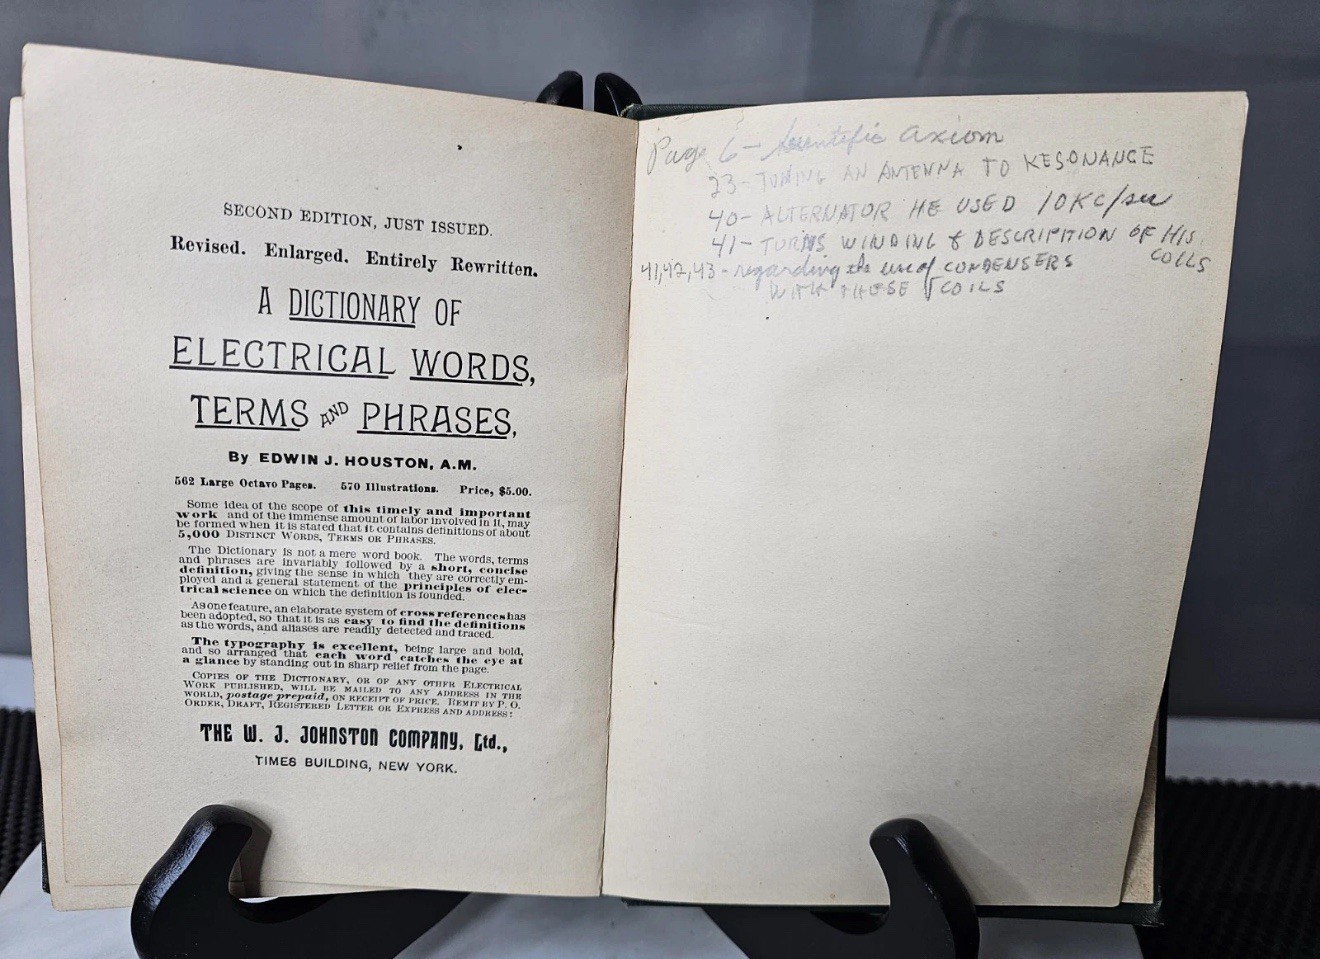 SECOND EDITION, JUST ISSUED.
Revised. Enlarged. Entirely Rewritten.
A DICTIONARY OF
ELECTRICAL WORDS,
TERMS AND PHRASES,
By EDWIN J. HOUSTON, A.M.
562 Large Octavo Pages. 570 Illustrations. Price, $5.00.
Some idea of the scope of this timely and important
work and of the immense amount of labor involved in it, may
be formed when it is stated that it contains definitions of about
5,000 DISTINCT WORDS, TERMS OR PHRASES.
The Dictionary is not a mere word book. The words, terms
and phrases are invariably followed by a short, concise
definition, giving the sense in which they are correctly em-
ployed and a general statement of the principles of elec-
trical science on which the definition is founded.
As one feature, an elaborate system of cross references has
been adopted, so that it is as easy to find the definitions
as the words, and aliases are readily detected and traced.
The typography is excellent, being large and bold,
and so arranged that each word catches the eye at
a glance by standing out in sharp relief from the page.
COPIES OF THE DICTIONARY, OR OF ANY OTHER ELECTRICAL
WORK PUBLISHED, WILL BE MAILED TO ANY ADDRESS IN THE
WORLD, postage prepaid, ON RECEIPT OF PRICE. REMIT BY P. O.
ORDER, DRAFT, REGISTERED LETTER OR EXPRESS AND ADDRESS:
THE W. J. JOHNSTON COMPANY, Ltd.,
TIMES BUILDING, NEW YORK.
Page 6 - Scientific axiom
23 - TUNING AN ANTENNA TO RESONANCE
40 - ALTERNATOR HE USED 10KC/sec
41 - TURNS WINDING & DESCRIPTION OF HIS
COILS
41,42,43 - regarding the use of CONDENSERS
WITH THESE COILS